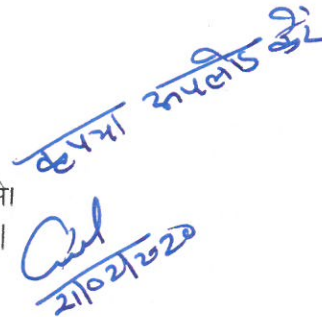 कृपया अपलोड करें
21/02/2020